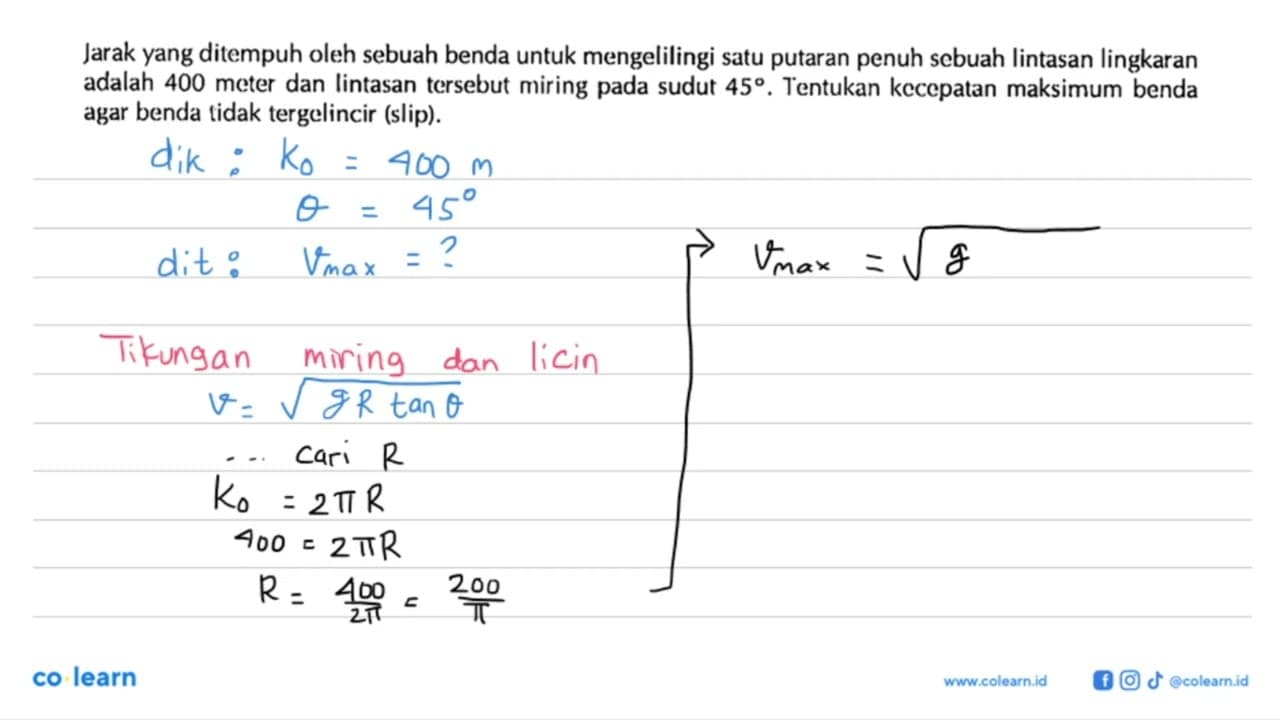 Jarak yang ditempuh oleh sebuah benda untuk mengelilingi satu putaran penuh sebuah lintasan lingkaran
adalah 400 meter dan lintasan tersebut miring pada sudut 45°. Tentukan kecepatan maksimum benda
agar benda tidak tergelincir (slip).
dik : Ko = 400 m
θ = 45°
dit : Vmax = ?
Tikungan miring dan licin
v = √gR tan θ
... cari R
Ko = 2πR
400 = 2πR
R = 400/2π = 200/π
Vmax = √g
co learn
www.colearn.id
@colearn.id